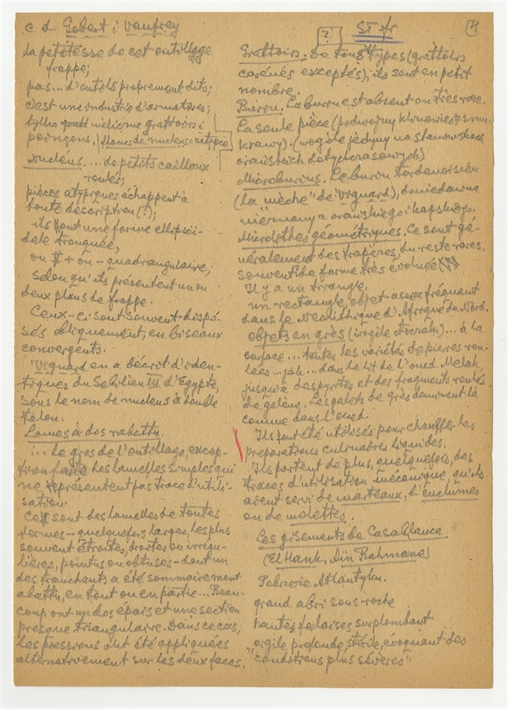 c d Gobert i Vaufrey
la petitesse de cet outillage
frappe;
pas... d'outils proprement dits;
c'est une industrie d'armatures;
tylko nieliczne grattoirs i
poinçons.
nucléus. ... de petits cailloux
roulés;
pièces atypiques échappent à
toute description (!);
ils ont une forme ellipsoi-
dale tronquée,
ou + ou - quadrangulaire,
selon qu'ils présentent un ou
deux plans de frappe.
Ceux-ci sont souvent dispo-
sés obliquement, en biseaux
convergents.
Vignard en a décrit d'iden-
tiques du Sebilien III d'Égypte
sous le nom de nucleus à double
talon.
Lames à dos rabattu.
... le gros de l'outillage, excep-
tion faite des lamelles simples qui
ne représentent pas trace d'utili-
sation.
Ce sont des lamelles de toutes
formes - quelquefois larges, les plus
souvent étroites, droites ou irrégu-
lières, pointus ou obtuses - dont un
des tranchants a été sommairement
abattu, en tout ou en partie... Beau-
coup ont un dos épais et une section
presque triangulaire. Dans ce cas,
les pressions ont été appliquées
alternativement sur les deux faces.
?
Grattoirs. De tous types (grattoirs
carénés exceptés), ils sont en petit
nombre.
Burin. Le burin est absent ou très rare.
La seule pièce
(w ogóle jedyny na stanowiskach
orańskich dotychczasowych)
Microburins. Le burin tardenoisien
(la "mèche" de Vignard), do niedawna
nieznany z orańskiego i kapskiego.
Microlithes géométriques. Ce sont gé-
néralement des trapèzes, du reste rares.
souvent de forme très évoluée
Il y a un triangle.
un rectangle, objet assez fréquent
dans le Néolithique d'Afrique du Nord.
Objets en grès ... à la
surface... toutes les variétés de pierres rou-
lées... jak... dans le lit de l'oued Melah,
jusqu'à des pyrites et des fragments roulés
de galène. Les galets de grès dominent là
comme dans l'oued.
Ils ont été utilisés pour chauffer les
préparations culinaires liquides.
Ils portent de plus, quelquefois, des
traces d'utilisation mécanique, qu'ils
aient servi de marteaux, d'enclumes
ou de molettes.
Les gisements de Casablanca
(El Hank, Aïn Rahmane)
Pobrzeże Atlantyku.
grand abri sous-roche
hautes falaises surplombant
"argile profonde, stérile, évoquant des
conditions plus sévères"